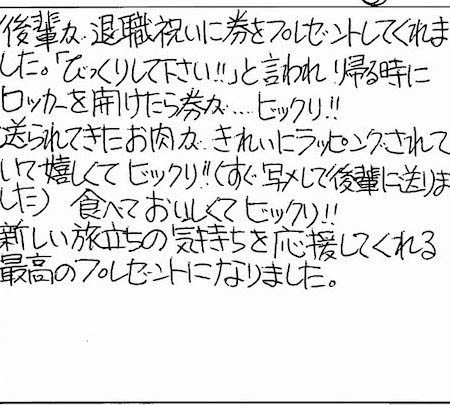 後輩が退職祝いに券をプレゼントしてくれま
した。「びっくりして下さい!!」と言われ、帰る時に
ロッカーを開けたら券が…ビックリ!!
送られてきたお肉が、きれいにラッピングされて
いて嬉しくてビックリ!!(すぐ写メして後輩に送りま
した) 食べておいしくてビックリ!!
新しい旅立ちの気持ちを応援してくれる
最高のプレゼントになりました。